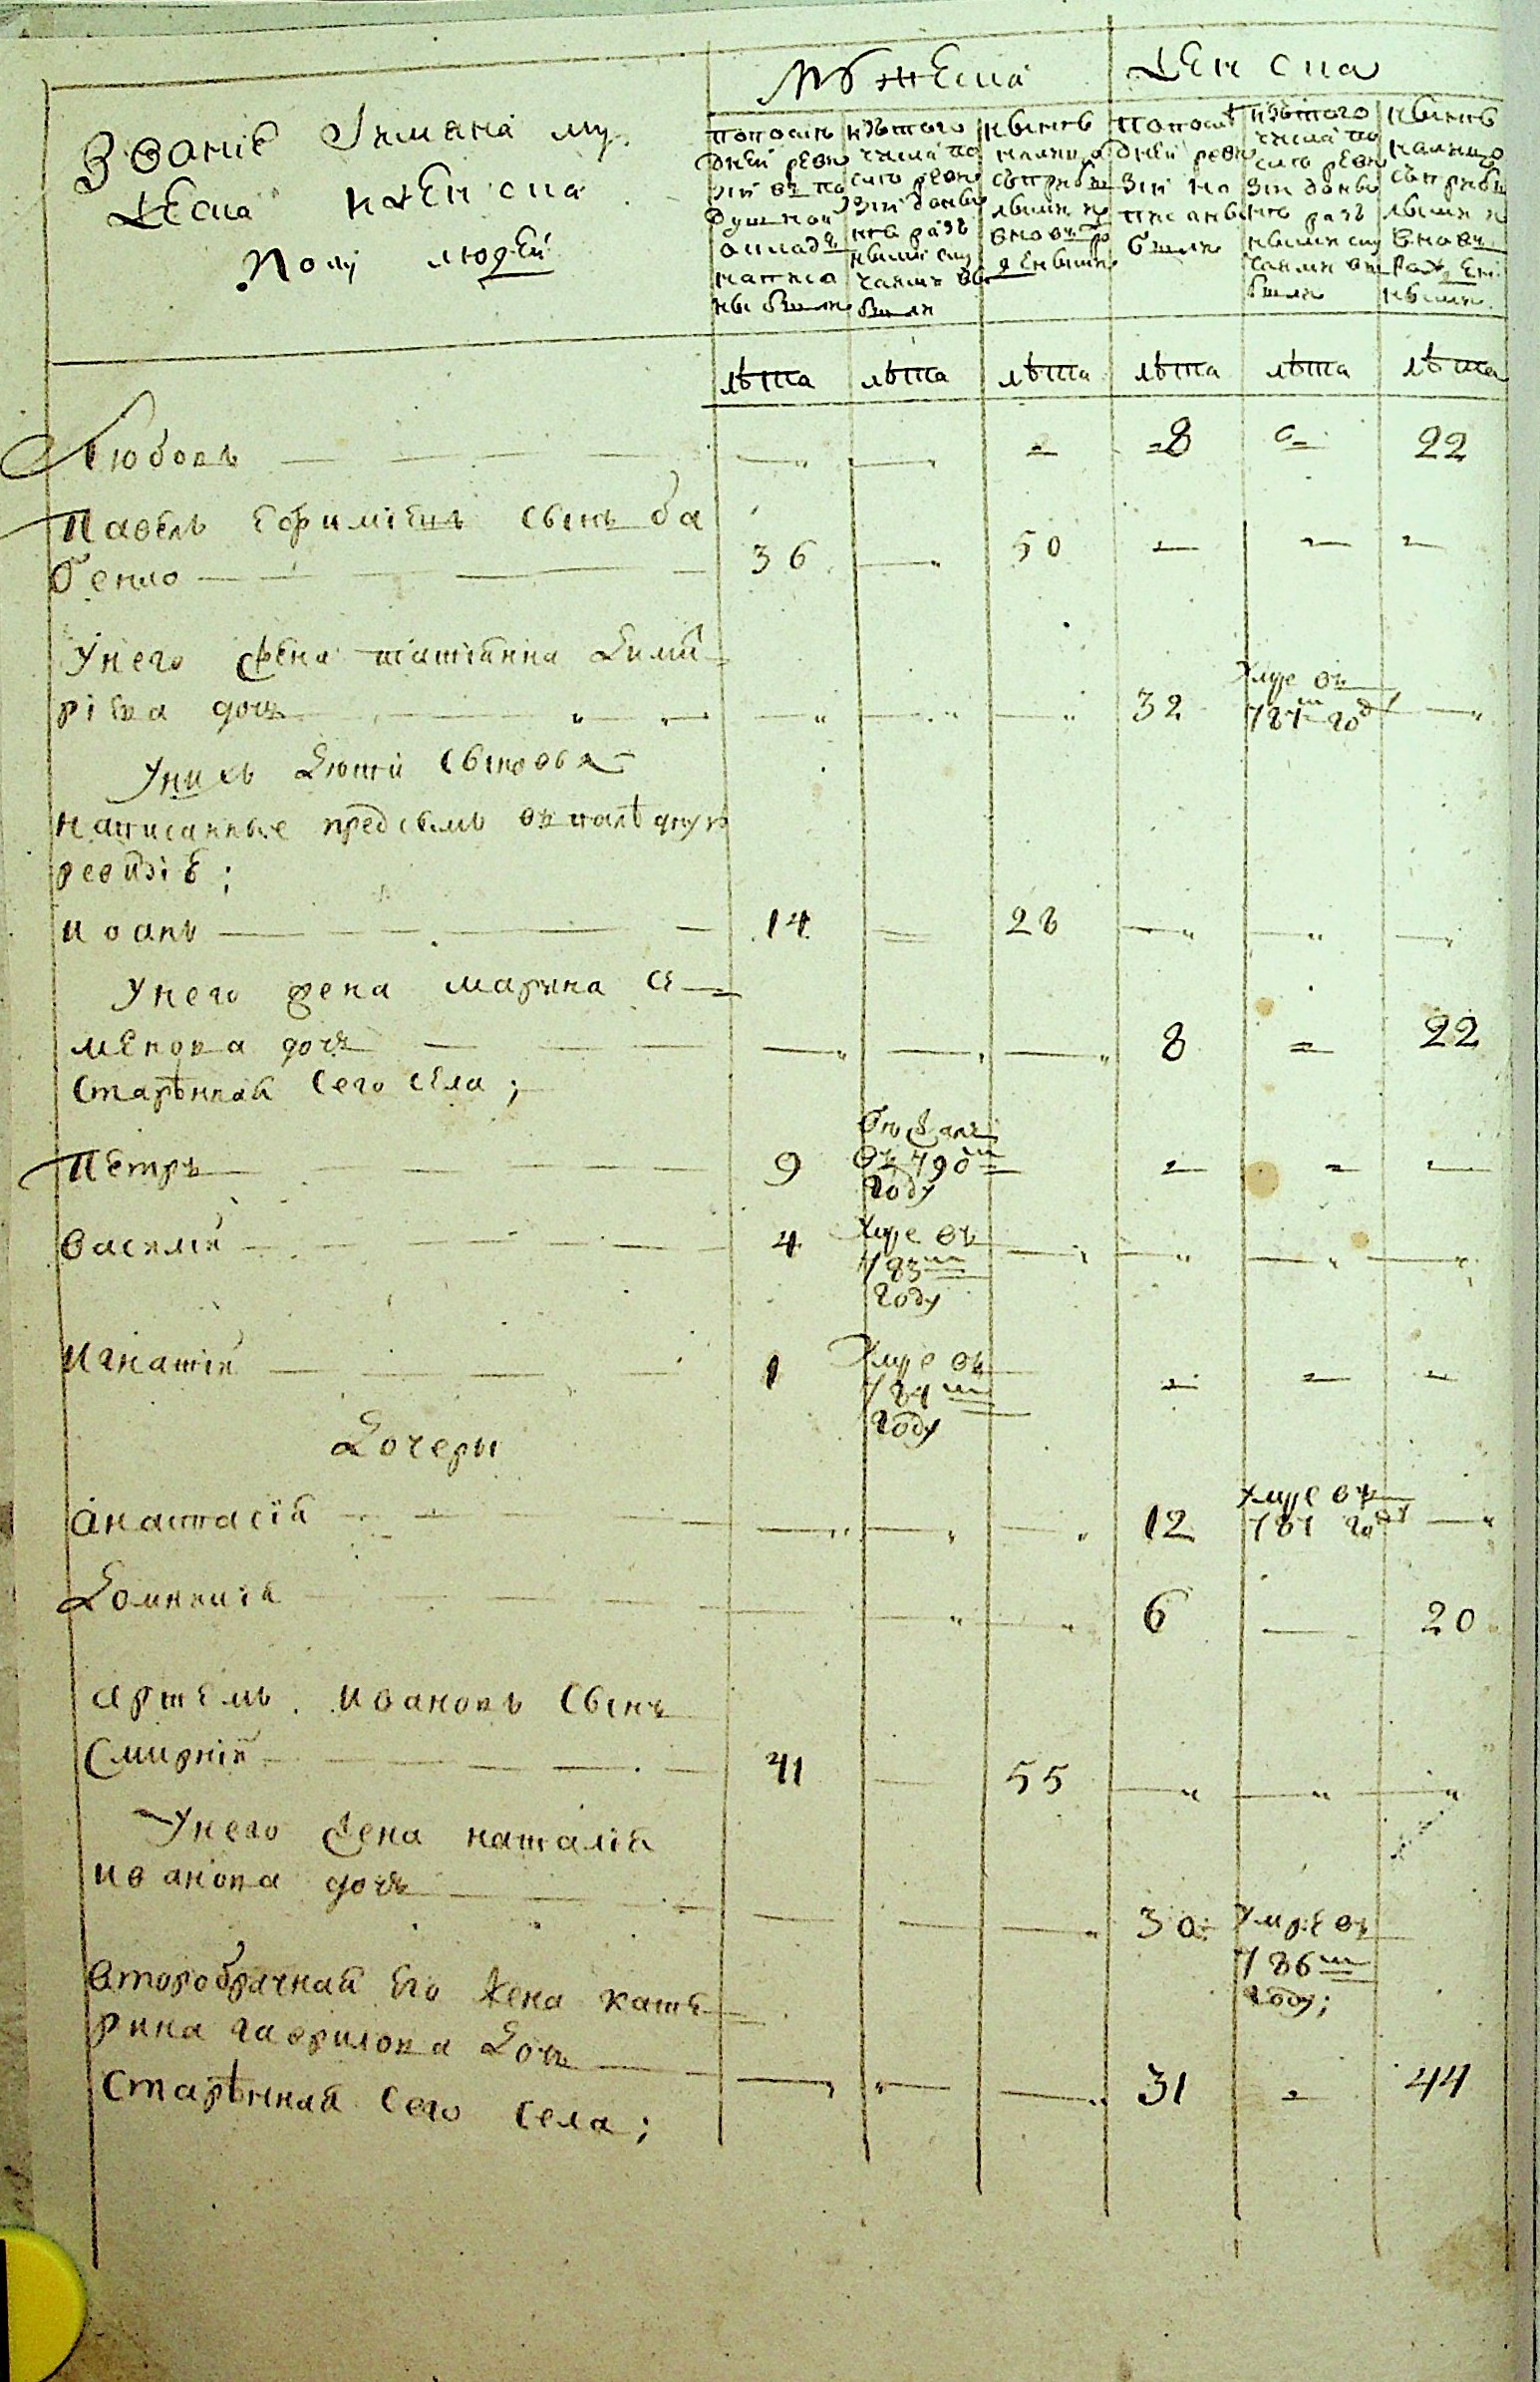 Званіе Іимана му
жеска и женска
полу людей
Мужеска
Женска
по последней ревизіи въ подушной окладъ написаны были
изъ того числа по сію ревизію разными случаями выбыли
ныне на лицо съ прибылыми и вновь рожденными
по последней ревизіи писаны были
изъ того числа по сію ревизію разными случаями выбыли
ныне на лицо съ прибылыми и вновь рожденными
лѣта лѣта лѣта лѣта лѣта лѣта
Любовь — — — 8 — 22
Павелъ Ефиміевъ сынъ ба
бенко 36 — 50 — — —
Унего жена татіанна Дими
ріева дочь — — — 32 Умре въ 787м году —
Унихъ дети сыновья
написанные предсемъ въ
ревизіе;
иоанъ 14 — 28 — — —
Унего жена марина се
менова дочь — — — 8 — 22
старѣнная сего села;
Петръ 9 въ 790м году — — —
василій 4 Умре въ 783м году — — — —
игнатій 1 Умре въ 784м году — — —
Дочеры
анастасія — — — 12 Умре въ 787 году —
Домникія — — — 6 — 20
артемъ ивановъ сынъ
Смирній 41 — 55 — — —
Унего жена наталія
иванова дочь — — — 30 Умре въ 786м году;
второбрачная его жена кате
рина гаврилова дочь
старѣнная сего села; — — — 31 — 44